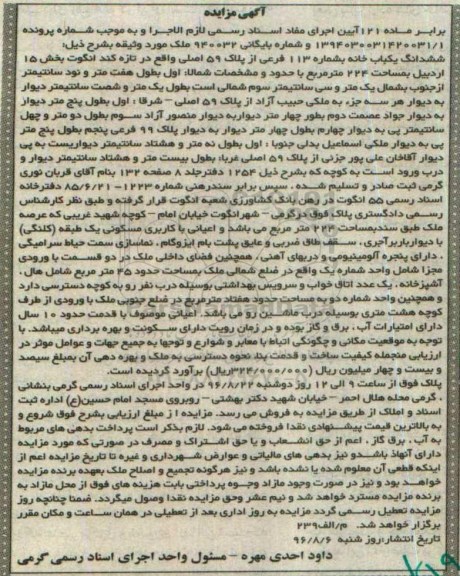 آگهی مزایده
برابر ماده ۱۲۱ آیین اجرای مفاد اسناد رسمی لازم الاجرا و به موجب شماره پرونده
۱۳۹۴۰۳۰۰۳۱۴۲۰۰۳۱/۱ و شماره بایگانی ۹۴۰۰۳۲ ملک مورد وثیقه بشرح ذیل:
ششدانگ یکباب خانه بشماره ۱۱۳ فرعی از پلاک ۵۹ اصلی واقع در تازه کند انگوت بخش ۱۵
اردبیل بمساحت ۲۲۴ مترمربع با حدود و مشخصات شمالا: اول بطول هفت متر و نود سانتیمتر
ازجنوب بشمال یک متر و سی سانتیمتر سوم شمالی است بطول یک متر و شصت سانتیمتر دیوار
به دیوار هر سه جزء به ملکی حبیب آزاد از پلاک ۵۹ اصلی – شرقا : اول بطول پنج متر دیوار
به دیوار جواد عصمت دوم بطور چهار متر دیواربه دیوار منصور آزاد سوم بطول دو متر و چهل
سانتیمتر پی به دیوار چهارم بطول چهار متر دیوار به دیوار پلاک ۹۹ فرعی پنجم بطول پنج متر
پی به دیوار ملکی اسماعیل بدلی جنوبا : اول بطول نه متر و هشتاد سانتیمتر دیواریست به پی
دیوار آقاخان علی پور جزئی از پلاک ۵۹ اصلی غربا: بطول بیست متر و هشتاد سانتیمتر دیوار و
درب ورود است به کوچه که بشرح ذیل ۱۲۵۴ دفترجلد ۸ صفحه ۱۳۲ بنام آقای قربان نوری
گرمی ثبت صادر و تسلیم شده . سپس برابر سندرهنی شماره ۱۲۲۳– ۸۵/۶/۲۱ دفترخانه
اسناد رسمی ۵۵ انگوت در رهن بانک کشاورزی شعبه انگوت قرار گرفته و طبق نظر کارشناس
رسمی دادگستری پلاک فوق درگرمی – شهرانگوت خیابان امام – کوچه شهید غریبی که عرصه
ملک طبق سندبمساحت ۲۲۴ متر مربع می باشد و اعیانی با کاربری مسکونی یک طبقه (کلنگی)
با دیوارباربرآجری . سقف طاق ضربی و عایق پشت بام ایزوگام . نماسازی سمت حیاط سرامیکی
. دارای پنجره آلومینیومی و دربهای آهنی . همچنین فضای داخلی ملک در دو قسمت با ورودی
مجزا شامل واحد شماره یک واقع در ضلع شمالی ملک بمساحت حدود ۴۵ متر مربع شامل هال .
آشپزخانه . یک عدد اتاق خواب و سرویس بهداشتی بوسیله درب نفر رو به کوچه دسترسی دارد
و همچنین واحد شماره دو به مساحت حدود هفتاد مترمربع در ضلع جنوبی ملک با ورودی از طرف
کوچه هشت متری بوسیله درب ماشین رو می باشد. اعیانی موصوف با قدمت حدود ۱۰ سال
دارای امتیازات آب ، برق و گاز بوده و در زمان رویت دارای سکونت و بهره برداری میباشد. با
توجه به موقعیت مکانی و چگونگی اتباط با معابر و شوارع و توجها به جمیع جهات و عوامل موثر در
ارزیابی منجمله کیفیت ساخت و قدمت بنا. نحوه دسترسی به ملک و بهره دهی آن بمبلغ سیصد
و بیست و چهار میلیون ریال (۳۲۴/۰۰۰/۰۰۰ریال) برآورد گردیده است.
پلاک فوق از ساعت ۹ الی ۱۲ روز دوشنبه ۹۶/۸/۲۲ در واحد اجرای اسناد رسمی گرمی بنشانی
. گرمی محله هلال احمر – خیابان شهید دکتر بهشتی – روبروی مسجد امام حسین(ع) اداره ثبت
اسناد و املاک از طریق مزایده به فروش می رسد. مزایده از مبلغ ارزیابی بشرح فوق شروع و
به بالاترین قیمت پیشنهادی نقدا فروخته می شود. لازم بذکر است پرداخت بدهی های مربوط
به آب . برق گاز . اعم از حق انشعاب و یا حق اشتراک و مصرف در صورتی که مورد مزایده
دارای آنهاباشدو نیز بدهی های مالیاتی و عوارض شهرداری و غیره تا تاریخ مزایده اعم از
اینکه قطعی آن معلوم شده یا نشده باشد و نیز هرگونه تجمیع و اصلاح ملک بعهده برنده مزایده
خواهد بود و نیز در صورت وجود مازاد وجوه پرداختی بابت هزینه های فوق از محل مازاد به
برنده مزایده مسترد خواهد شد و نیم عشر وحق مزایده نقدا وصول میگردد. ضمنا چنانچه روز
مزایده تعطیل رسمی گردد مزایده به روز اداری بعد از تعطیلی در همان ساعت و مکان مقرر
برگزار خواهد شد. م/الف۲۳۹
تاریخ انتشار:روز شنبه ۹۶/۸/۶
داود احدی مهره – مسئول واحد اجرای اسناد رسمی گرمی